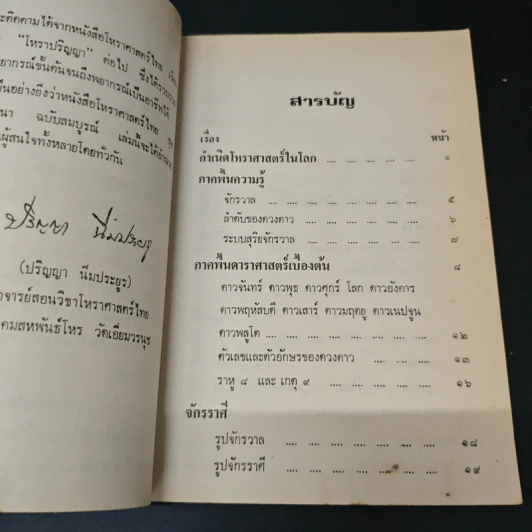 ะติดตามได้จากหนังสือโหราศาสตร์ไทย
"โหราปริญญา" ต่อไป ซึ่งได้รวบรวม
ยากรณ์ขั้นต้นจนถึงพยากรณ์เป็นอาชีพได้
ป็นอย่างยิ่งว่าหนังสือโหราศาสตร์ไทย ชุด
นา ฉบับสมบูรณ์ เล่มนี้จะได้อำนวย
ผู้สนใจทั้งหลายโดยทั่วกัน
ปริญญา นิ่มประยูร
(ปริญญา นิ่มประยูร)
าจารย์สอนวิชาโหราศาสตร์ไทย
คมสหพันธ์โหร วัดเอี่ยมวรนุช
สารบัญ
เรื่อง หน้า
กำเนิดโหราศาสตร์ในโลก .... .... .... .... .... ๑
ภาคพื้นความรู้
จักรวาล .... .... .... .... .... .... .... ๕
ลำดับของดวงดาว .... .... .... .... .... .... ๖
ระบบสุริยจักรวาล .... .... .... .... .... .... ๗
ภาคพื้นดาราศาสตร์เบื้องต้น ๘
ดาวจันทร์ ดาวพุธ ดาวศุกร์ โลก ดาวอังคาร
ดาวพฤหัสบดี ดาวเสาร์ ดาวมฤตยู ดาวเนปจูน
ดาวพลูโต .... .... .... .... .... .... .... ๑๒
ตัวเลขและตัวอักษรของดวงดาว .... .... .... .... ๑๓
ราหู ๘ และ เกตุ ๙ .... .... .... .... .... ๑๖
จักรราศี
รูปจักรวาล .... .... .... .... .... .... .... ๑๘
รูปจักรราศี .... .... .... .... .... .... .... ๑๙